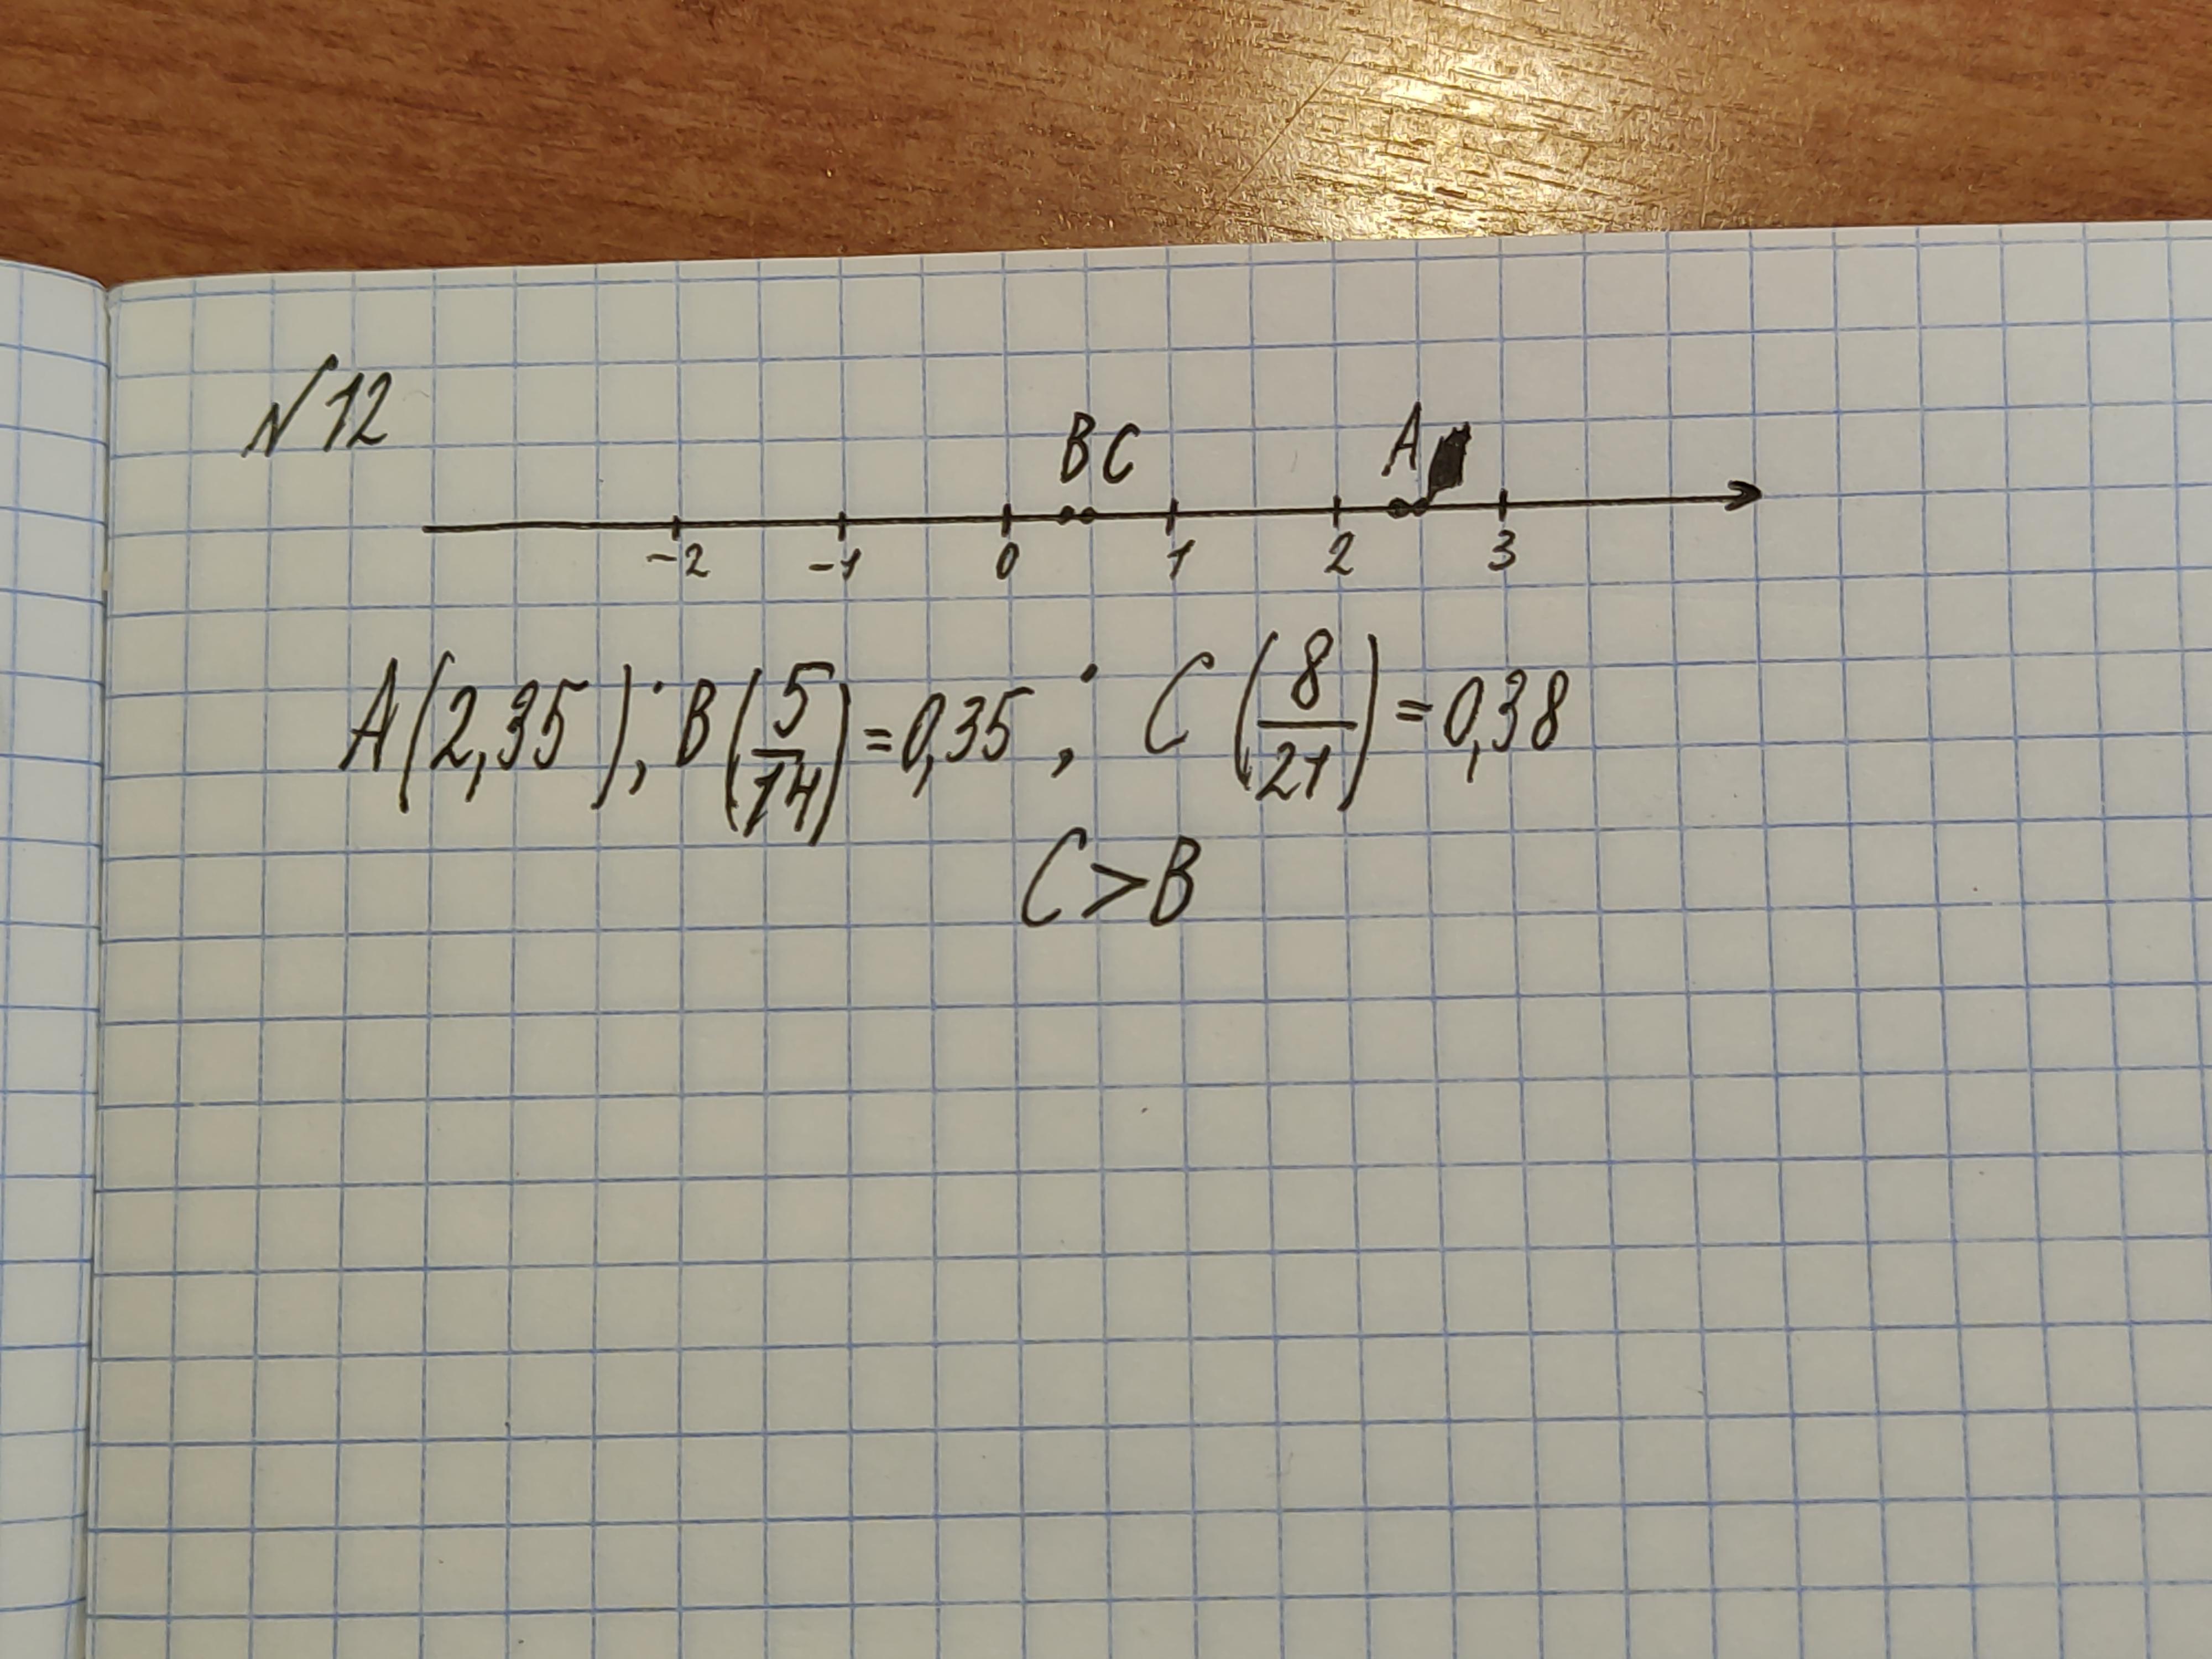 №12
B C A
-2 -1 0 1 2 3
A(2,35); B(5/14)=0,35; C(8/21)=0,38
C>B